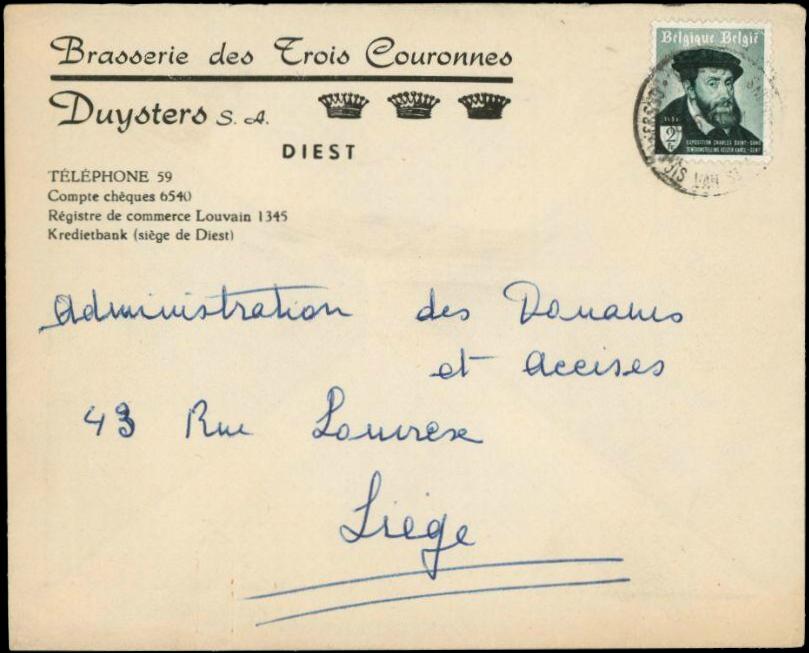 Brasserie des Trois Couronnes
Duysters S. A.
DIEST
TÉLÉPHONE 59
Compte chèques 6540
Régistre de commerce Louvain 1345
Kredietbank (siège de Diest)
Belgique België
2
EXPOSITION CHARLES QUINT - GAND
TENTOONSTELLING KEIZER KAREL - GENT
Administration des Douanes
et Accises
43 Rue Louvrex
Liège